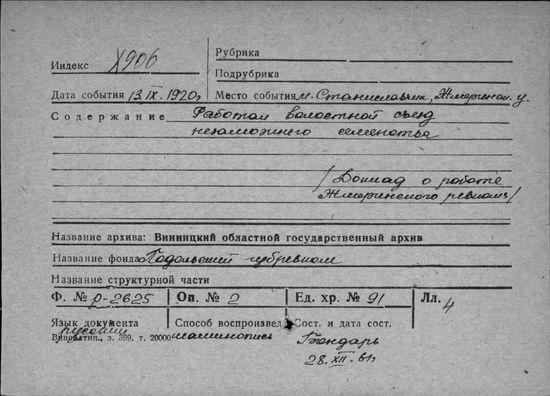 Индекс X906
Рубрика
Подрубрика
Дата события 13.IX.1920г Место события м. Станиславчик, Жмеринск. у.
Содержание Работал волостной съезд
незаможнего селенства
/Доклад о работе
Жмеринского ревкома/
Название архива: Винницкий областной государственный архив
Название фонда Подольский губревком
Название структурной части
Ф. № р-2625 Оп. № 2 Ед. хр. № 91 Лл. 4
Язык документа Способ воспроизвед. Сост. и дата сост.
русский машинопись Бондарь
э. 399, т. 20000
28.XII.61г